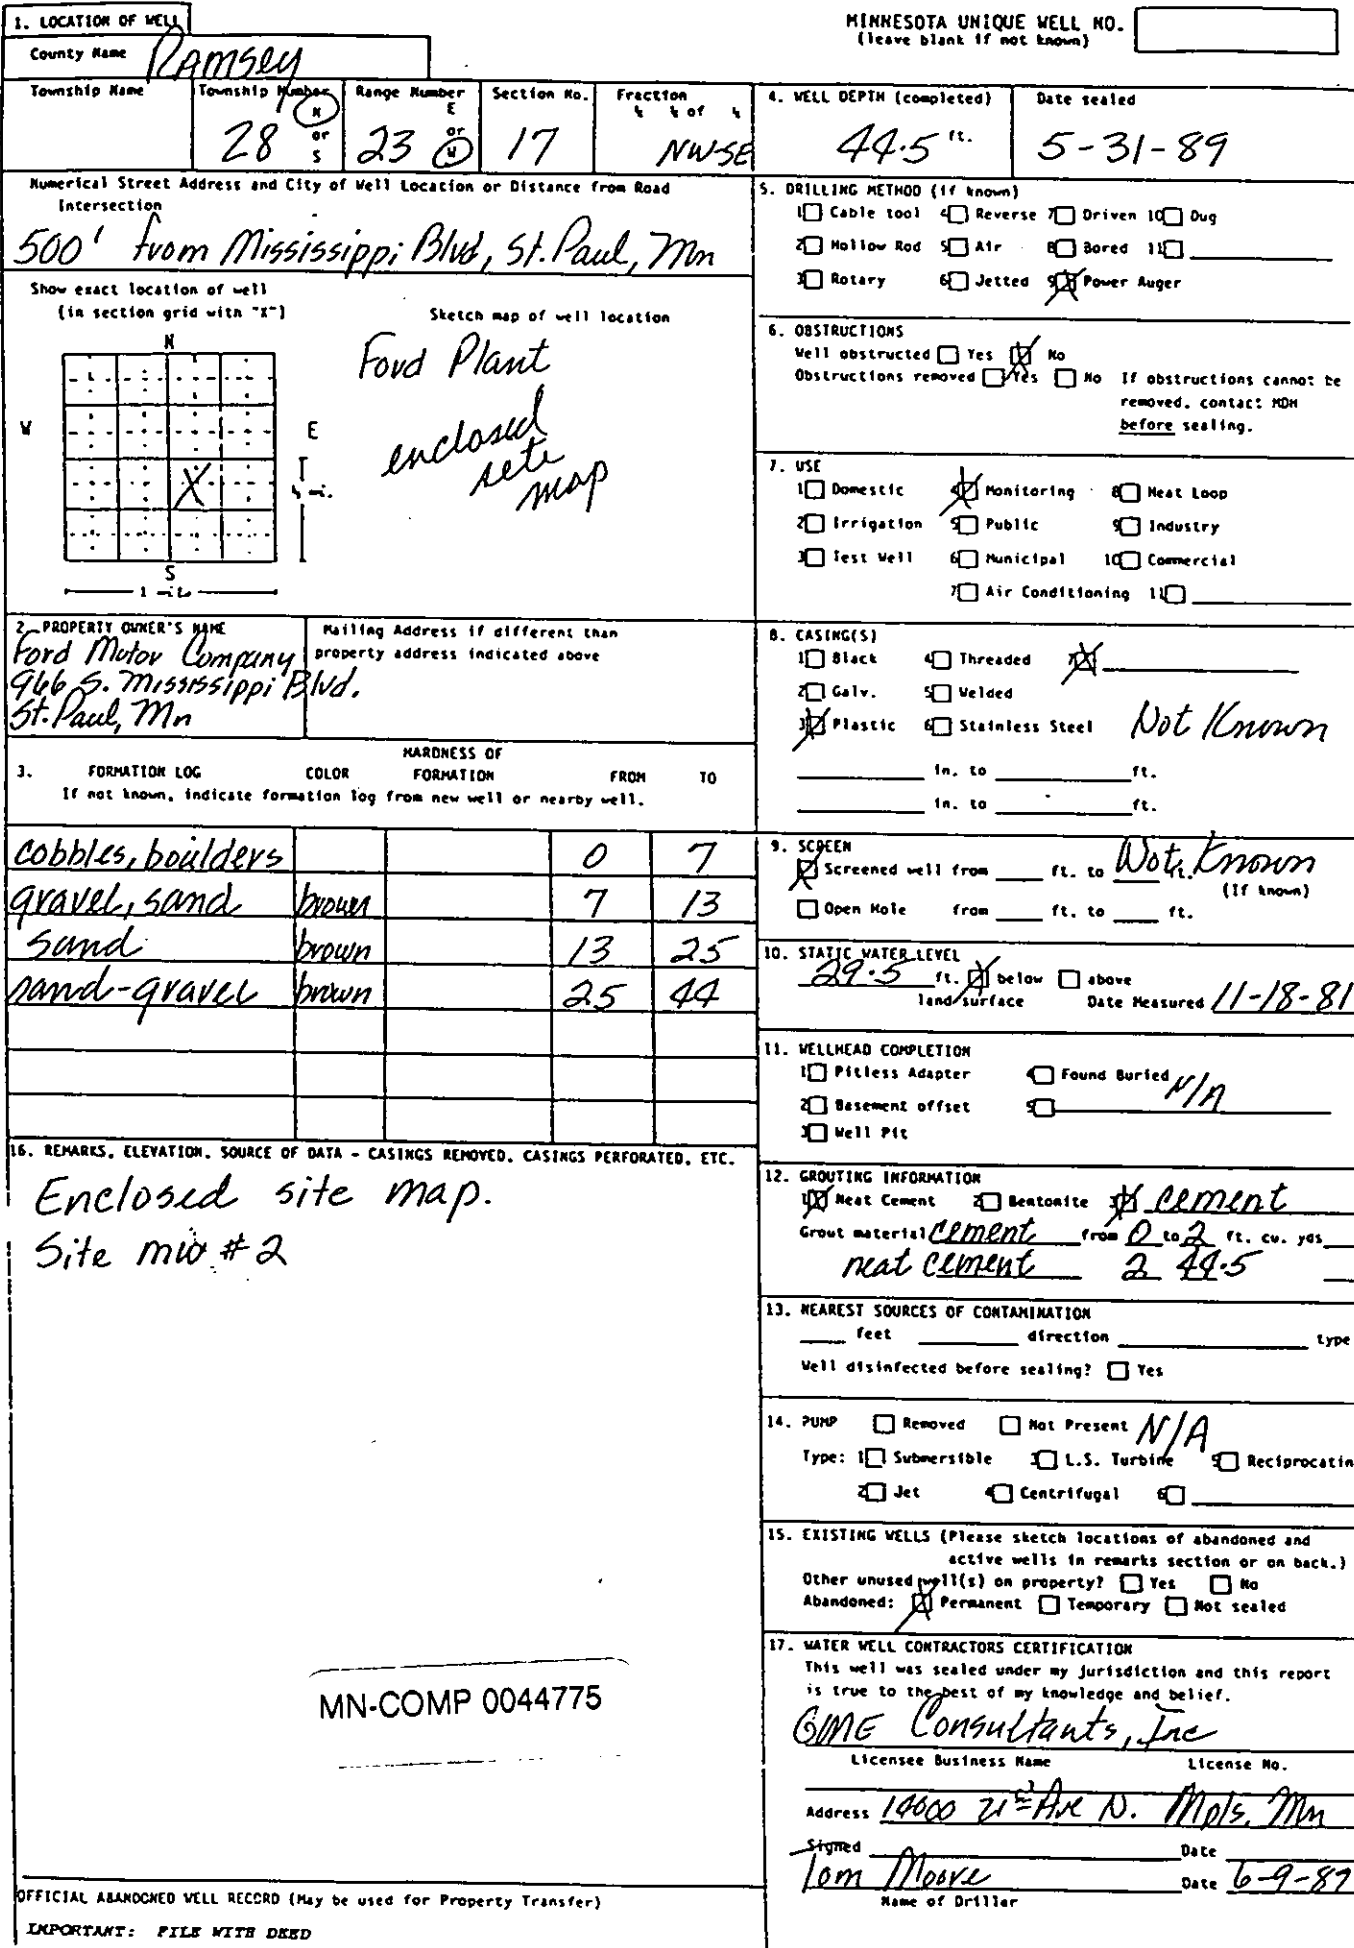 1. LOCATION OF WELL
MINNESOTA UNIQUE WELL NO.
(leave blank if not known)
County Name Ramsey
Township Name
Township Number 28 N or S
Range Number 23 E or W
Section No. 17
Fraction ¼ ¼ of ¼ NW-SE
4. WELL DEPTH (completed) 44.5 ft.
Date sealed 5-31-89
Numerical Street Address and City of Well Location or Distance from Road Intersection
500' from Mississippi Blvd, St. Paul, Mn
Show exact location of well
(in section grid with "X")
Sketch map of well location
N
W E
X
S
1 mile
Ford Plant
enclosed
site
map
5. DRILLING METHOD (if known)
1 Cable tool 4 Reverse 7 Driven 10 Dug
2 Hollow Rod 5 Air 8 Bored 11
3 Rotary 6 Jetted 9 X Power Auger
6. OBSTRUCTIONS
Well obstructed Yes X No
Obstructions removed Yes No If obstructions cannot be
removed, contact MDH
before sealing.
7. USE
1 Domestic 4 X Monitoring 8 Heat Loop
2 Irrigation 5 Public 9 Industry
3 Test Well 6 Municipal 10 Commercial
7 Air Conditioning 11
2. PROPERTY OWNER'S NAME
Ford Motor Company
966 S. Mississippi Blvd.
St. Paul, Mn
Mailing Address if different than
property address indicated above
8. CASING(S)
1 Black 4 Threaded 7 X
2 Galv. 5 Welded
3 X Plastic 6 Stainless Steel Not Known
in. to ft.
in. to ft.
3. FORMATION LOG COLOR HARDNESS OF FORMATION FROM TO
If not known, indicate formation log from new well or nearby well.
cobbles, boulders 0 7
gravel, sand brown 7 13
sand brown 13 25
sand-gravel brown 25 44
9. SCREEN
X Screened well from ft. to ft. Not Known
(If known)
Open Hole from ft. to ft.
10. STATIC WATER LEVEL
29.5 ft. X below above
land surface Date Measured 11-18-81
11. WELLHEAD COMPLETION
1 Pitless Adapter 4 Found Buried N/A
2 Basement offset 5
3 Well Pit
16. REMARKS, ELEVATION, SOURCE OF DATA - CASINGS REMOVED, CASINGS PERFORATED, ETC.
Enclosed site map.
Site mw #2
12. GROUTING INFORMATION
1 X Neat Cement 2 Bentonite 3 X cement
Grout material cement from 0 to 2 ft. cu. yds
neat cement 2 44.5
13. NEAREST SOURCES OF CONTAMINATION
feet direction type
Well disinfected before sealing? Yes
14. PUMP Removed Not Present N/A
Type: 1 Submersible 3 L.S. Turbine 5 Reciprocatin
2 Jet 4 Centrifugal 6
15. EXISTING WELLS (Please sketch locations of abandoned and
active wells in remarks section or on back.)
Other unused well(s) on property? Yes No
Abandoned: X Permanent Temporary Not sealed
17. WATER WELL CONTRACTORS CERTIFICATION
This well was sealed under my jurisdiction and this report
is true to the best of my knowledge and belief.
GME Consultants, Inc
Licensee Business Name License No.
Address 14000 21st Ave N. Mpls. Mn
Signed Date
Tom Moore Date 6-9-89
Name of Driller
MN-COMP 0044775
OFFICIAL ABANDONED WELL RECORD (May be used for Property Transfer)
IMPORTANT: FILE WITH DEED